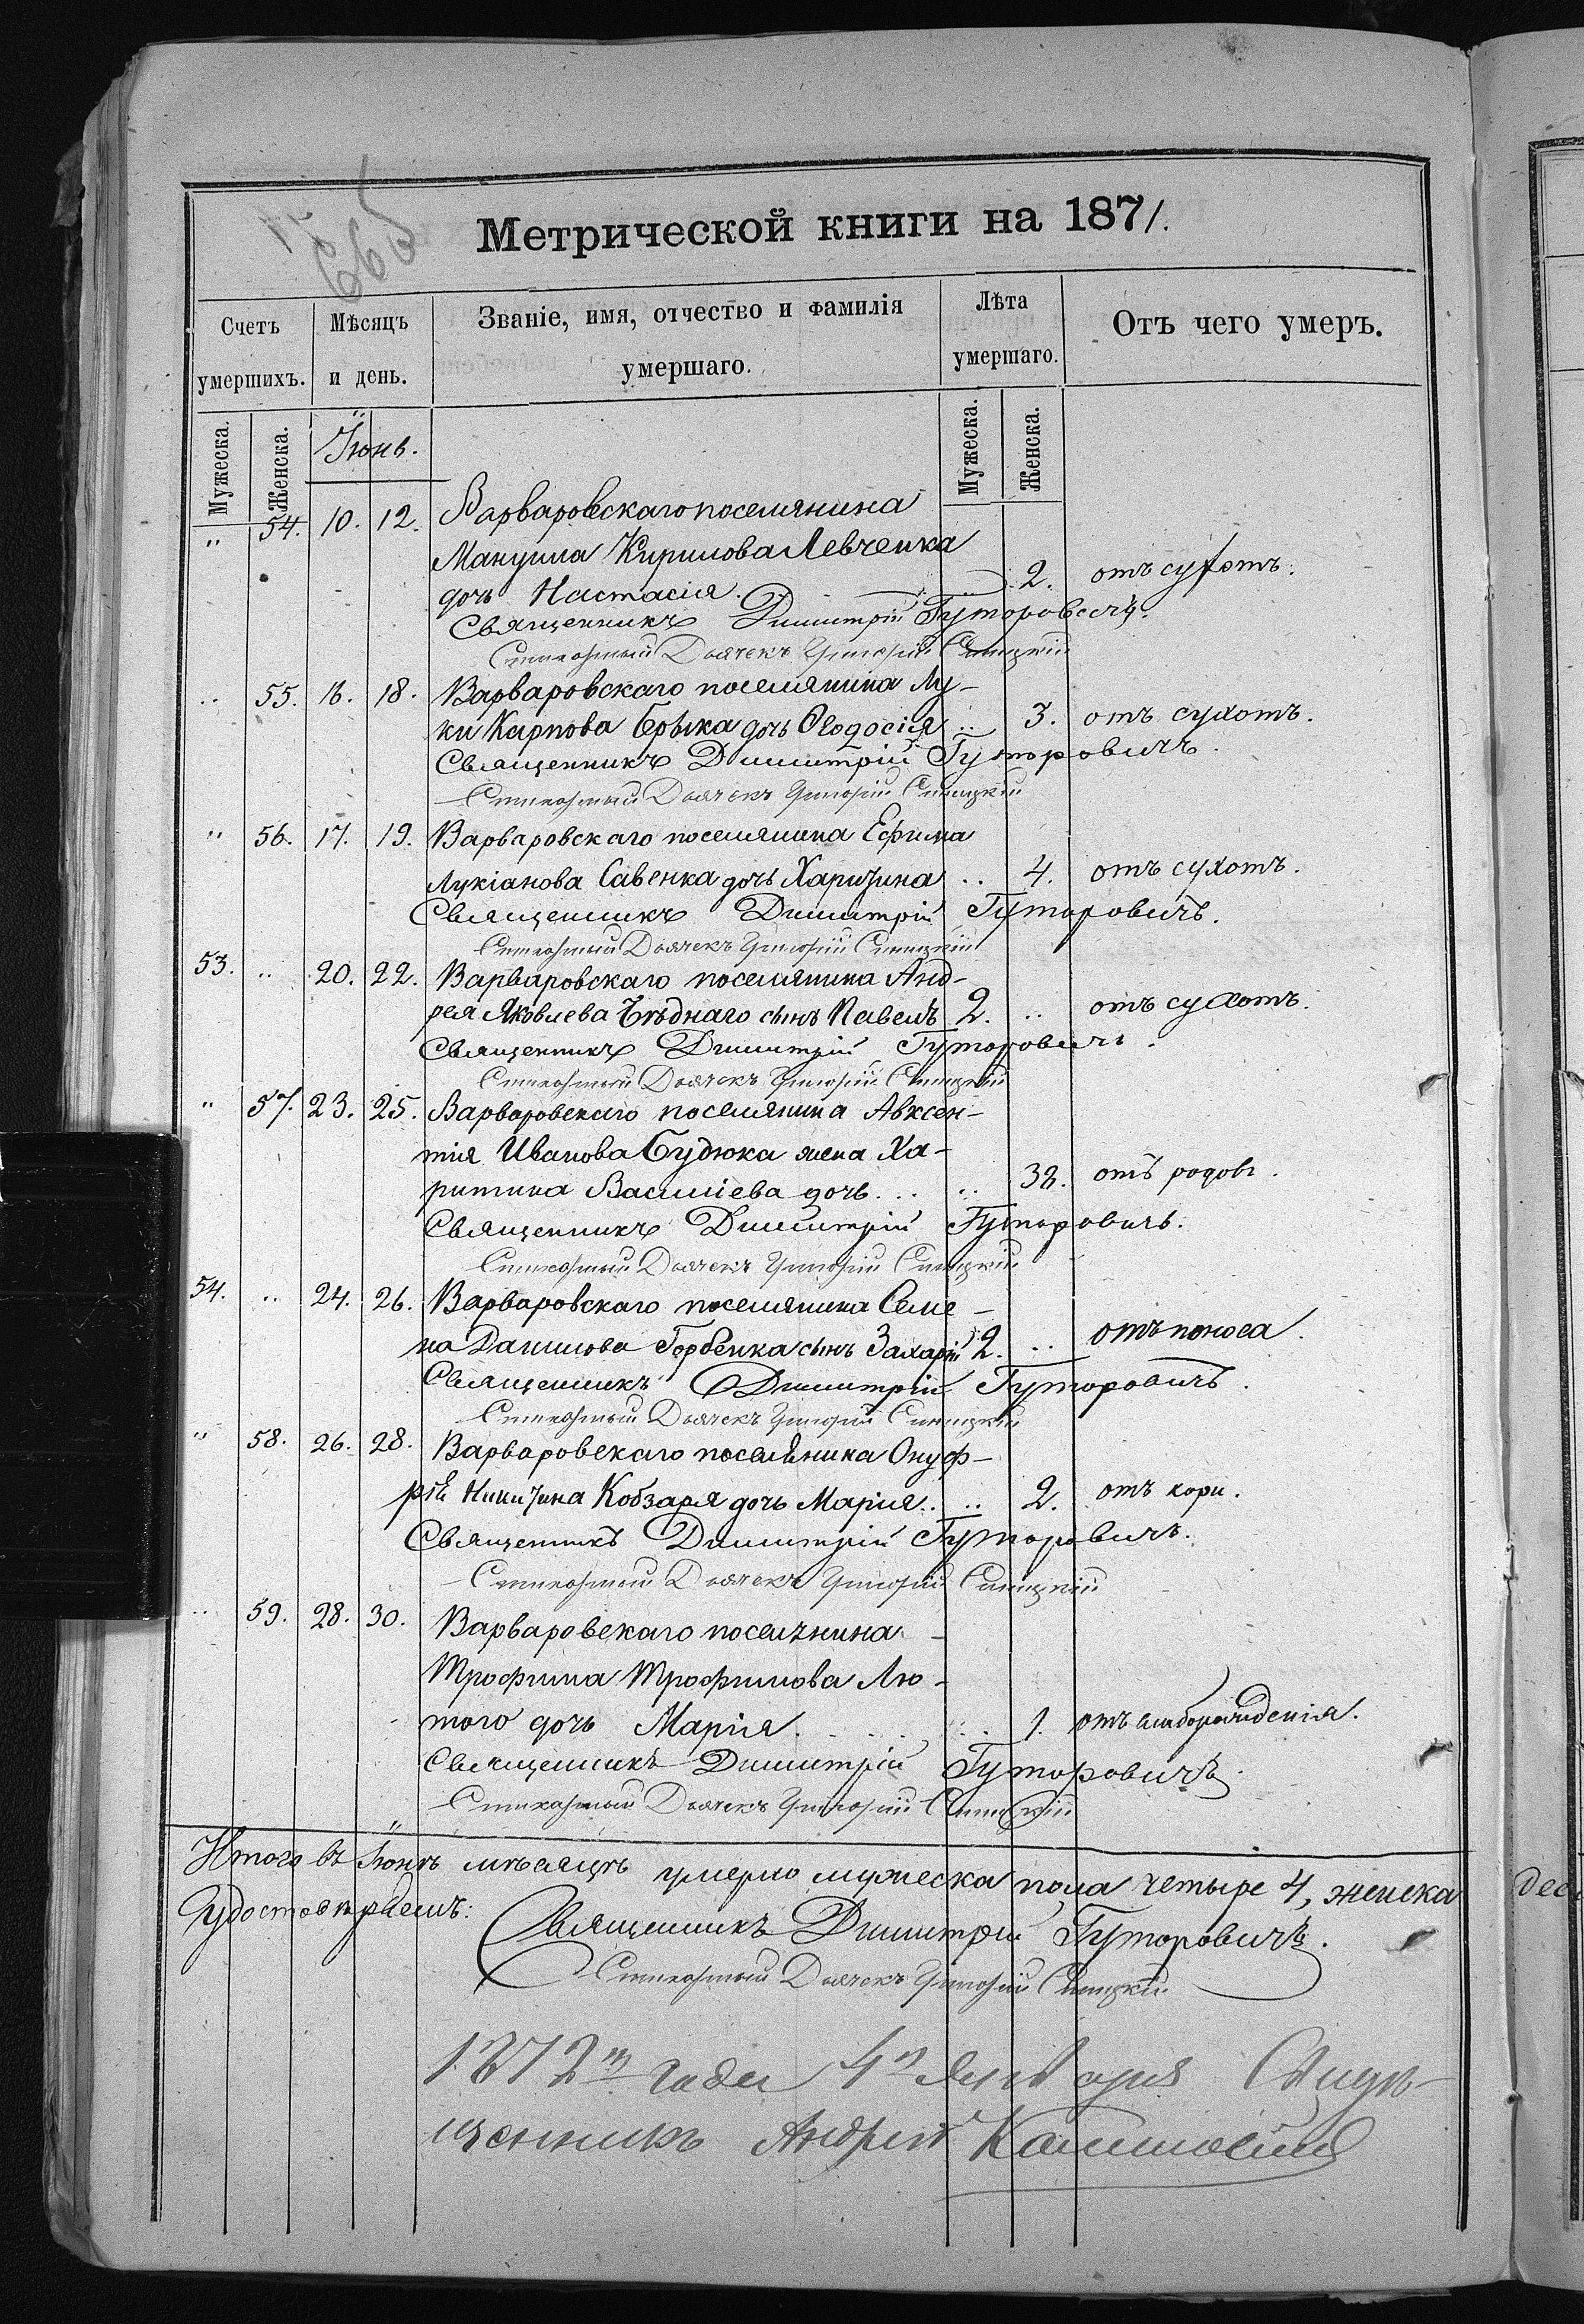 665
Метрической книги на 1871.
Счетъ умершихъ.
Мѣсяцъ и день.
Званіе, имя, отчество и фамилія умершаго.
Лѣта умершаго.
Отъ чего умеръ.
Мужеска. Женска.
Іюнь.
Мужеска. Женска.
" 54. 10. 12. Варваровскаго поселянина
Мануила Кирилова Левченка
дочь Настасія. 2. отъ сухотъ.
Священникъ Димитрій Гуторовичъ.
Стихарный Дьячекъ Григорій Синицкій
.. 55. 16. 18. Варваровскаго поселянина Лу-
ки Карпова Ерыка дочь Ѳеодосія .. 3. отъ сухотъ.
Священникъ Димитрій Гуторовичъ.
Стихарный Дьячекъ Григорій Синицкій
" 56. 17. 19. Варваровскаго поселянина Ефима
Лукіанова Савенка дочь Харитина .. 4. отъ сухотъ.
Священникъ Димитрій Гуторовичъ.
Стихарный Дьячекъ Григорій Синицкій
53. .. 20. 22. Варваровскаго поселянина Анд-
рея Яковлева Бѣднаго сынъ Павелъ 2. .. отъ сухотъ.
Священникъ Димитрій Гуторовичъ.
Стихарный Дьячекъ Григорій Синицкій
" 57. 23. 25. Варваровскаго поселянина Авксен-
тія Иванова Будюка жена Ха-
ритина Василіева дочь... .. 38. отъ родовъ.
Священникъ Димитрій Гуторовичъ.
Стихарный Дьячекъ Григорій Синицкій
54. .. 24. 26. Варваровскаго поселянина Семе-
на Данилова Горбенка сынъ Захарій 2. .. отъ поноса.
Священникъ Димитрій Гуторовичъ.
Стихарный Дьячекъ Григорій Синицкій
" 58. 26. 28. Варваровскаго поселянина Онуф-
рія Никитина Кобзаря дочь Марія. .. 2. отъ кори.
Священникъ Димитрій Гуторовичъ.
Стихарный Дьячекъ Григорій Синицкій
.. 59. 28. 30. Варваровскаго поселянина
Трофима Трофимова Лю-
того дочь Марія. .. 1. отъ слаборожденія.
Священникъ Димитрій Гуторовичъ.
Стихарный Дьячекъ Григорій Синицкій
Итого въ Іюнѣ мѣсяцѣ умерло мужеска пола четыре 4, женска
Удостовѣряемъ:
Священникъ Димитрій Гуторовичъ.
Стихарный Дьячекъ Григорій Синицкій
1872 года 4 Января
Андрей